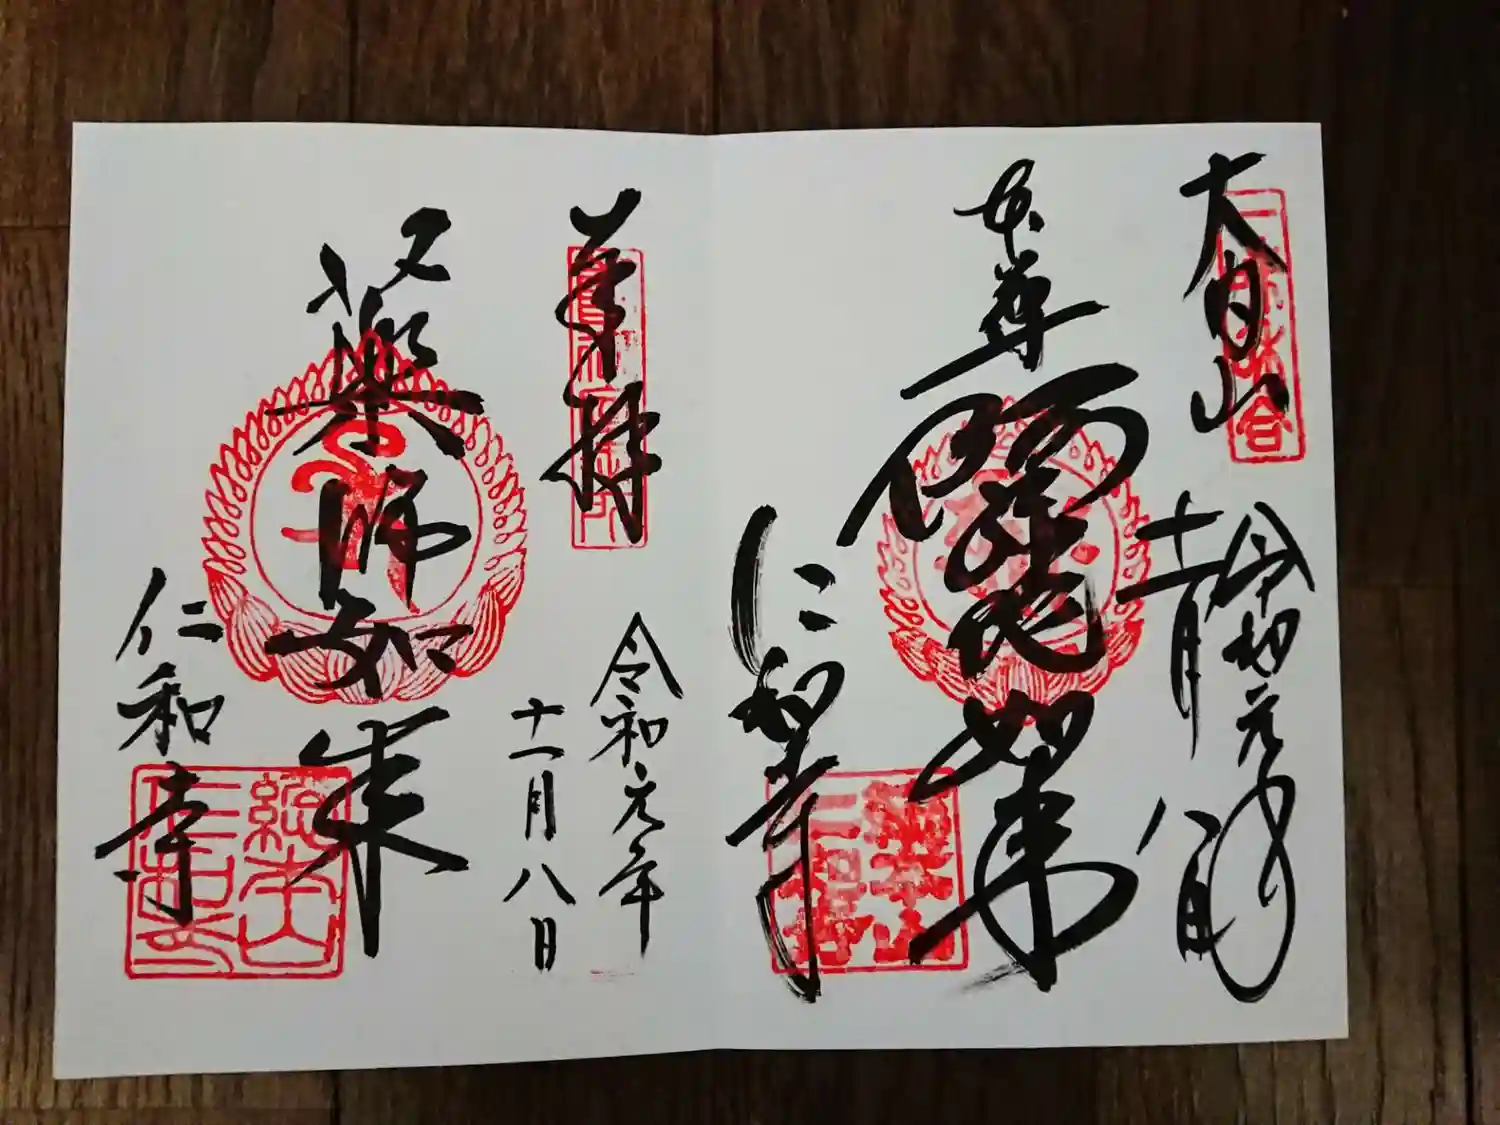 大内山
令和元年
十一月八日
本尊
阿弥陀如来
仁和寺
奉拝
令和元年
十一月八日
薬師如来
仁和寺
総本山
仁和寺